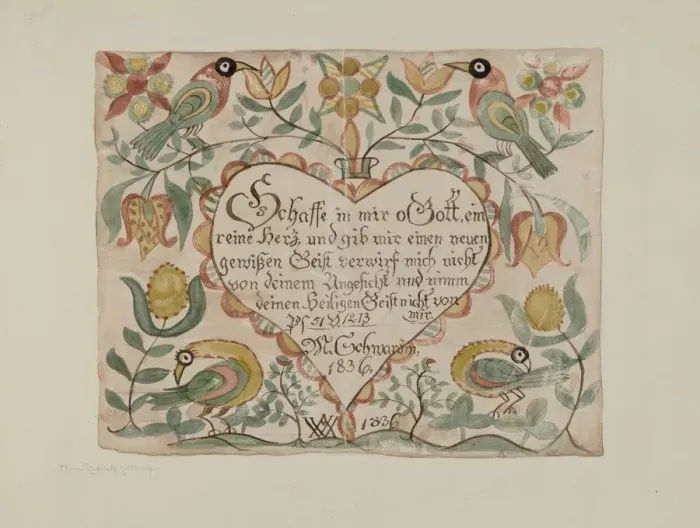 Schaffe in mir o Gott, ein
reine Herz, und gib mir einen neuen
gewißen Geist verwirf mich nicht
von deinem Angesicht und nimm
deinen Heiligen Geist nicht von
mir.
Ps 51 V 12 13
M.
1836.
1836